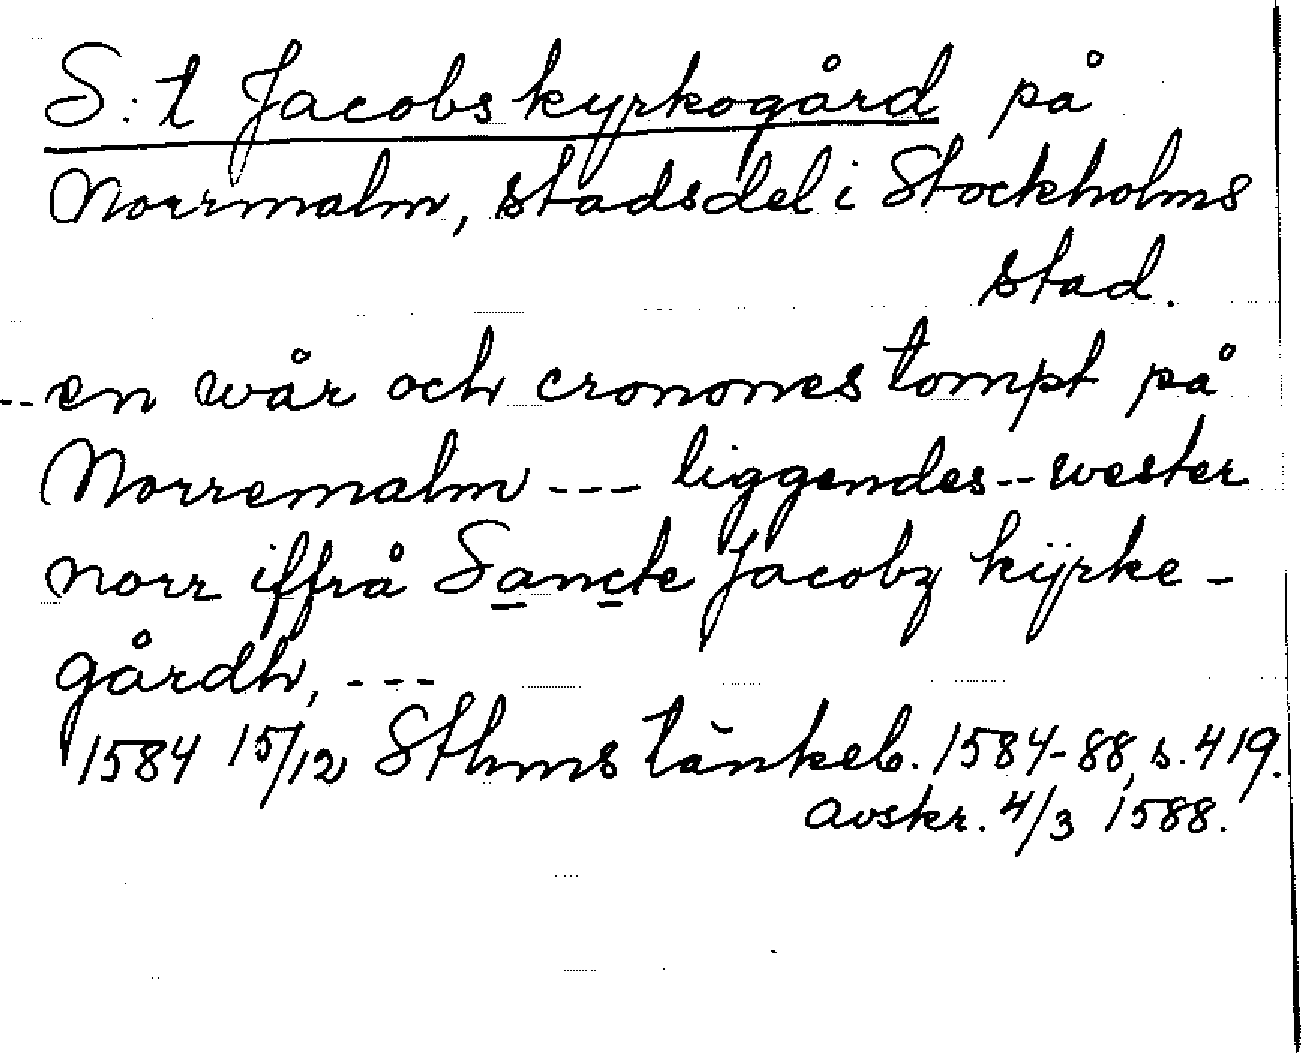 S:t Jacobs kyrkogård på
Norrmalm, stadsdel i Stockholms
stad.
-- en wår och cronones tompt på
Norremalm --- liggendes -- wester
norr iffrå Sancte Jacobz kÿrke-
gårdh, ---
1584 15/12 Sthms tänkeb. 1584-88, s. 419.
avskr. 4/3 1588.